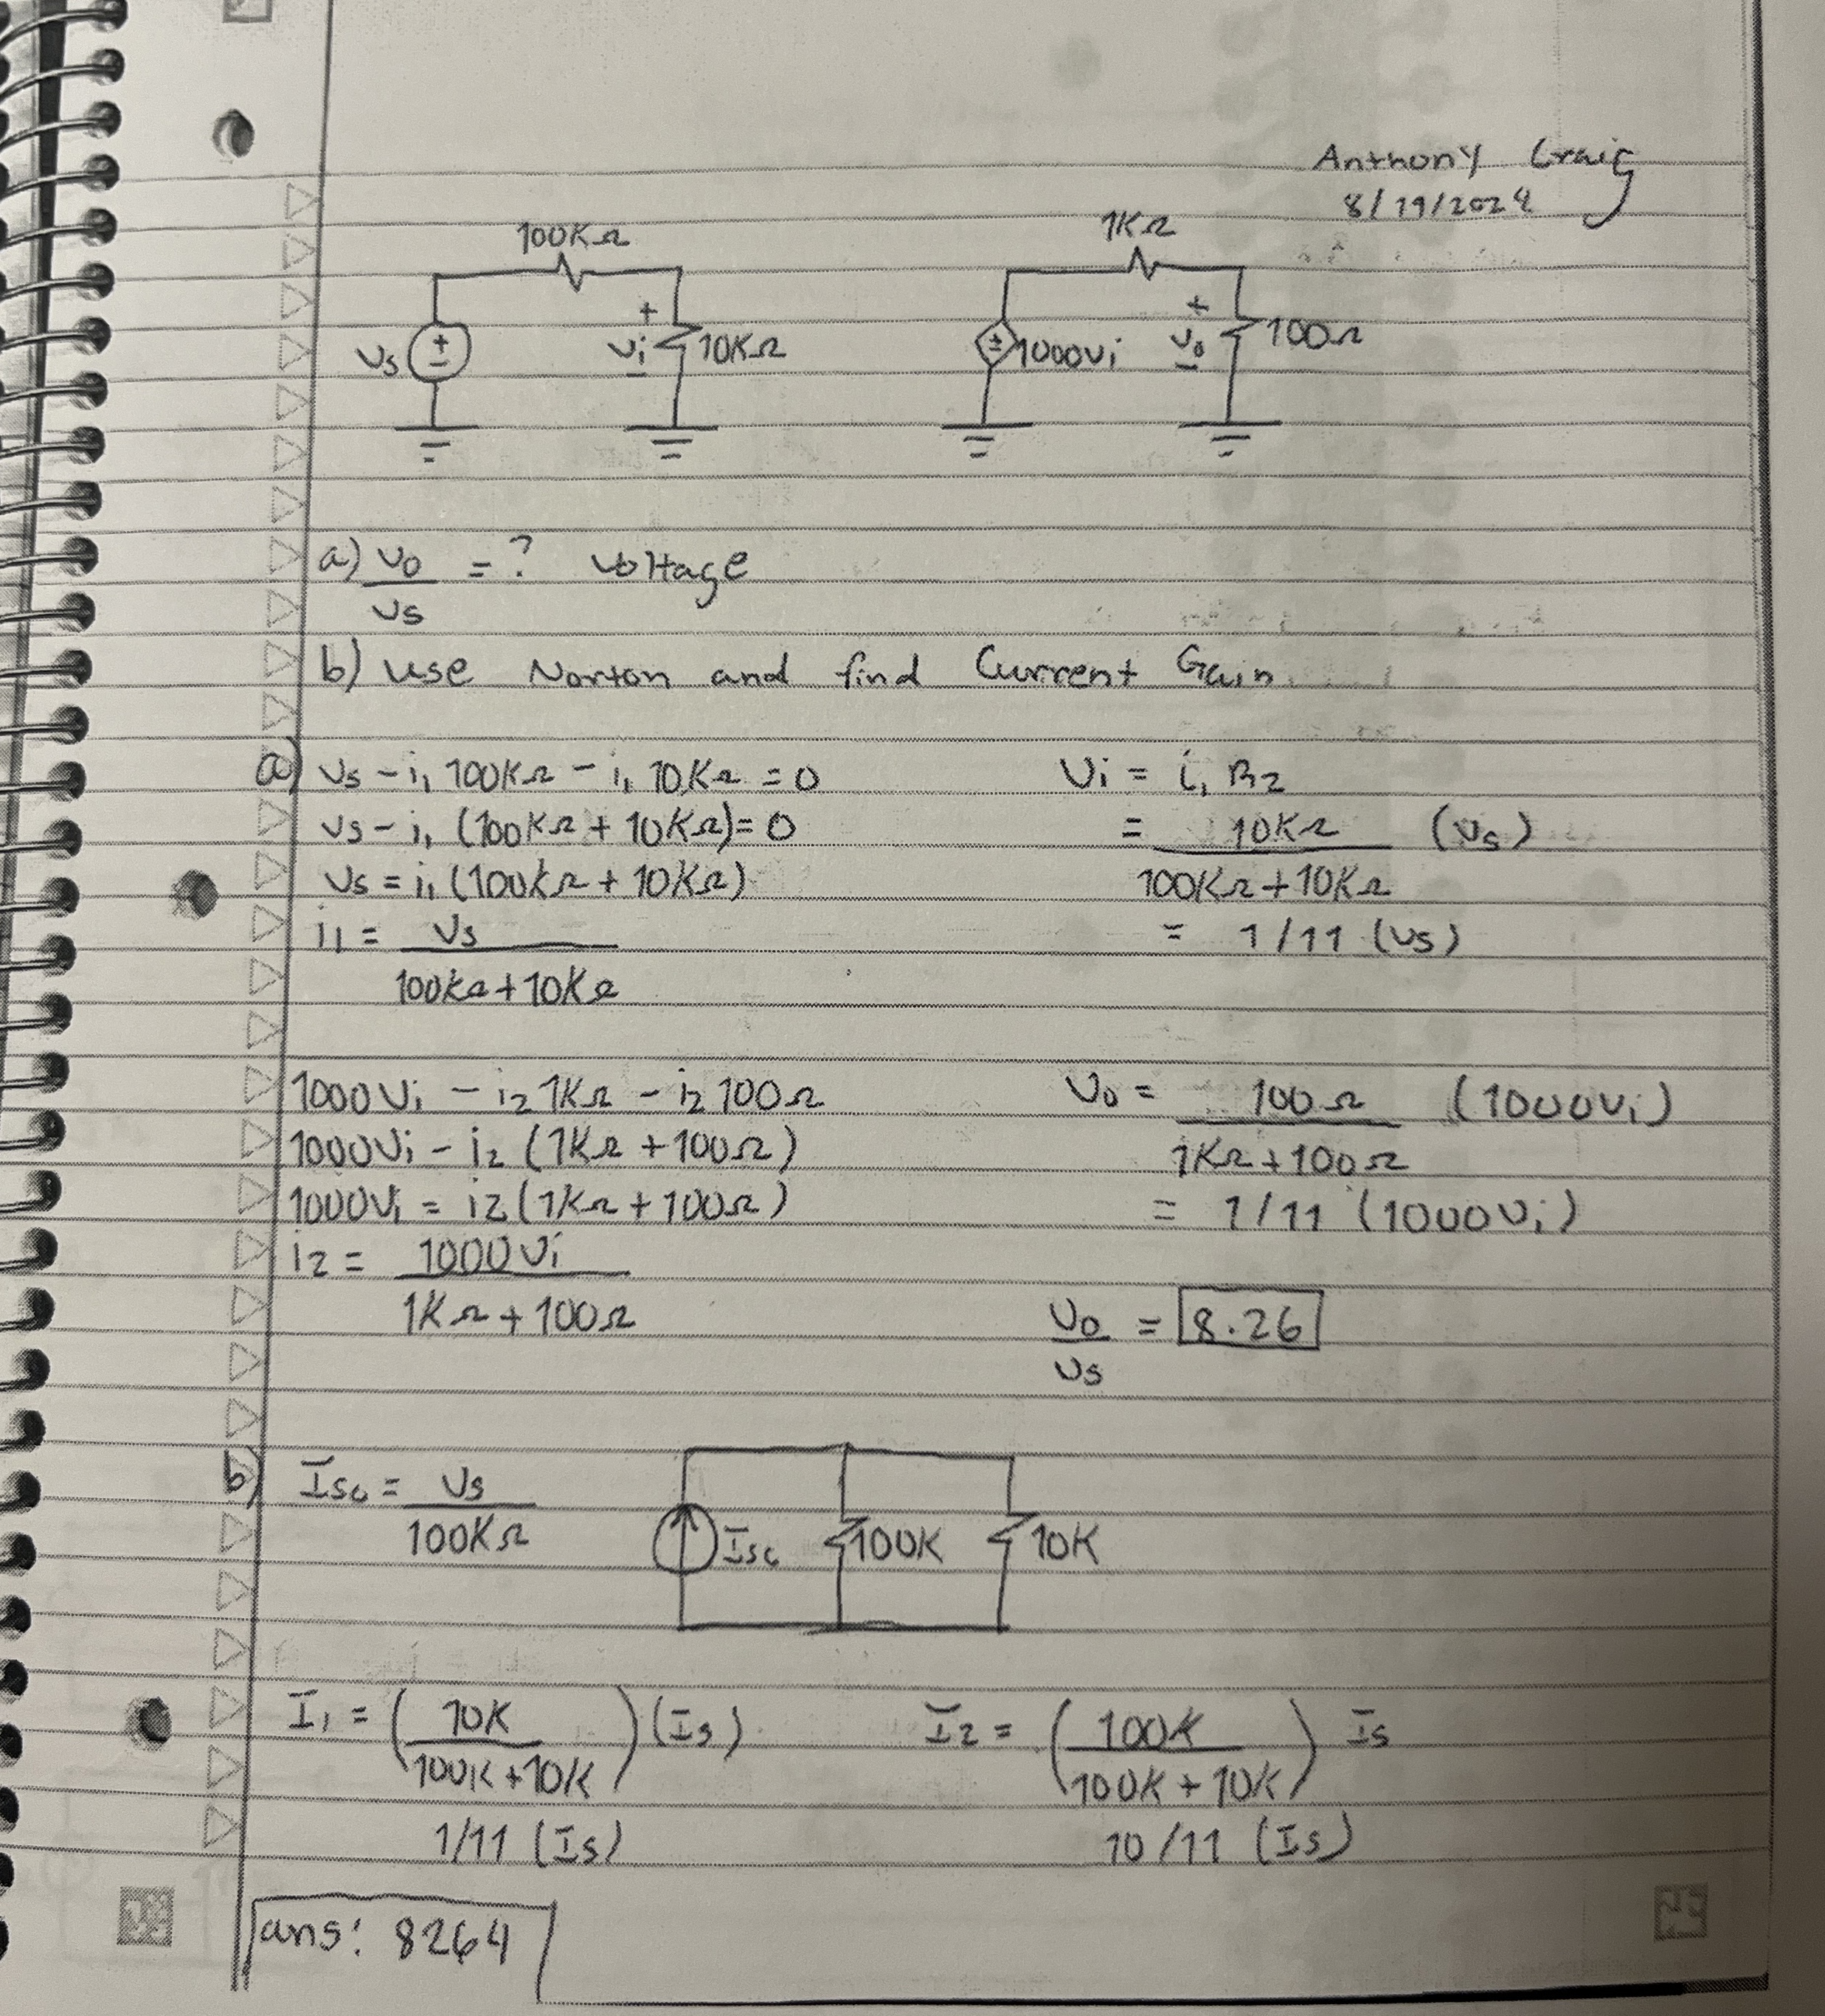 Anthony Craig
8/19/2024
100KΩ
1KΩ
Vs + - + Vi - 10KΩ ± 1000Vi + Vo - 100Ω
a) Vo/Vs = ? Voltage
b) Use Norton and find Current Gain
a) Vs - i1 100KΩ - i1 10KΩ = 0
Vs - i1 (100KΩ + 10KΩ) = 0
Vs = i1 (100KΩ + 10KΩ)
i1 = Vs / 100KΩ + 10KΩ
Vi = i1 R2
= 10KΩ / 100KΩ + 10KΩ (Vs)
= 1/11 (Vs)
1000Vi - i2 1KΩ - i2 100Ω
1000Vi - i2 (1KΩ + 100Ω)
1000Vi = i2 (1KΩ + 100Ω)
i2 = 1000Vi / 1KΩ + 100Ω
Vo = 100Ω / 1KΩ + 100Ω (1000Vi)
= 1/11 (1000Vi)
Vo/Vs = 8.26
b) Isc = Vs / 100KΩ
Isc 100K 10K
I1 = (10K / 100K + 10K) (Is)
1/11 (Is)
I2 = (100K / 100K + 10K) Is
10/11 (Is)
ans: 8264